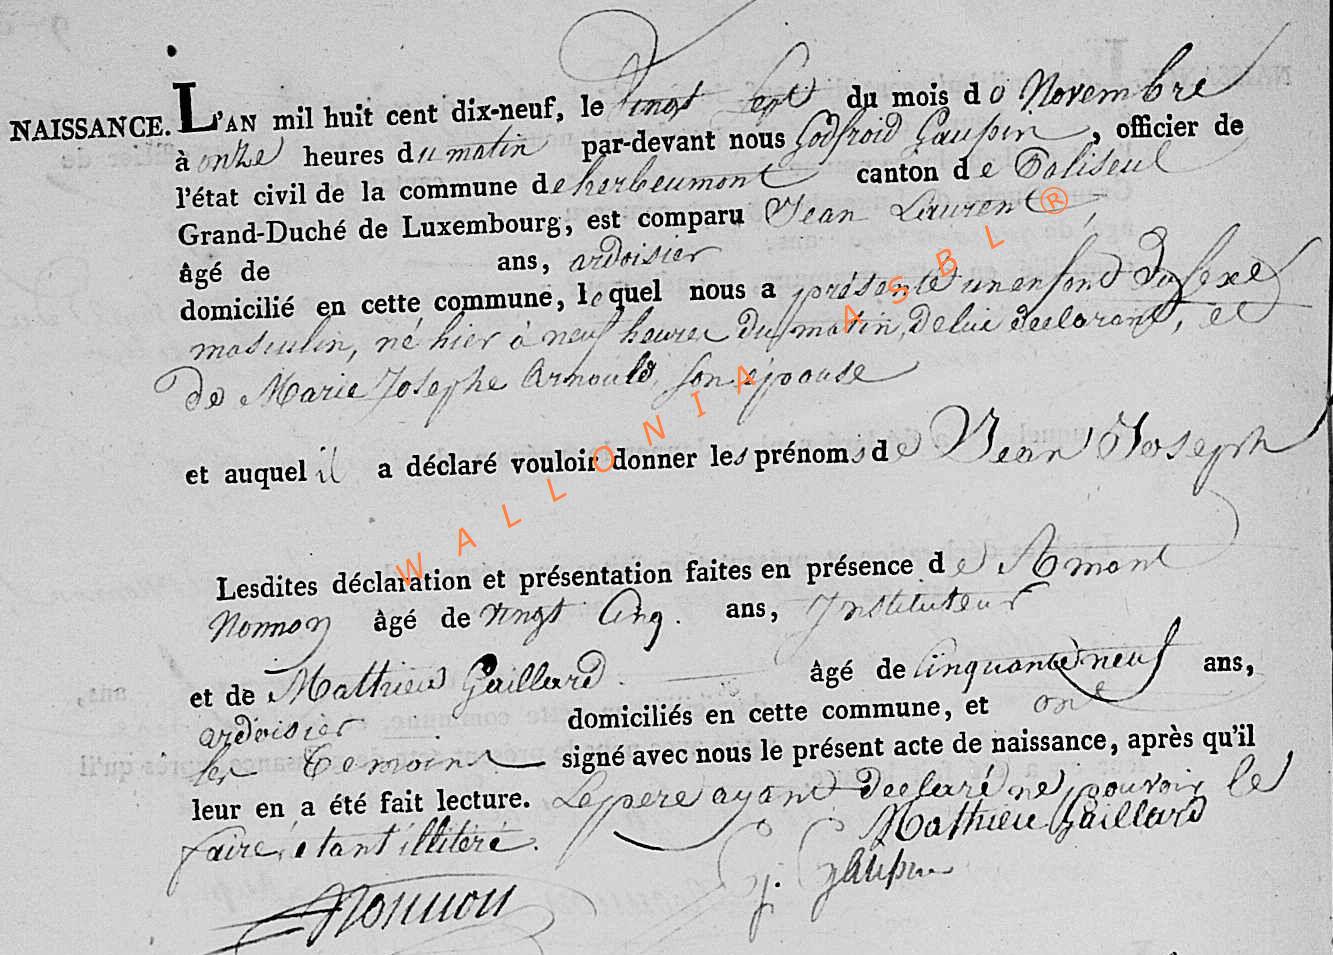 NAISSANCE. L'AN mil huit cent dix-neuf, le vingt Sept du mois de Novembre
à onze heures du matin par-devant nous Godfroid Gaupin, officier de
l'état civil de la commune de herbeumont canton de Paliseul
Grand-Duché de Luxembourg, est comparu Jean Laurent
âgé de ans, ardoisier
domicilié en cette commune, lequel nous a présenté un enfant du sexe
masculin, né hier à neuf heures du matin, de lui déclarant, et
de Marie Josephe Arnould, son épouse
et auquel il a déclaré vouloir donner les prénoms de Jean Joseph
Lesdites déclaration et présentation faites en présence de Amont
Nonnon âgé de vingt Cinq. ans, Instituteur
et de Mathieu Gaillard. âgé de Cinquante neuf ans,
ardoisier domiciliés en cette commune, et ont
les Temoins signé avec nous le présent acte de naissance, après qu'il
leur en a été fait lecture. Le pere ayant declaré ne pouvoir le
faire, étant illitéré. Mathieu Gaillard
Nonnon g. gaupin
WALLONIA ASBL ®